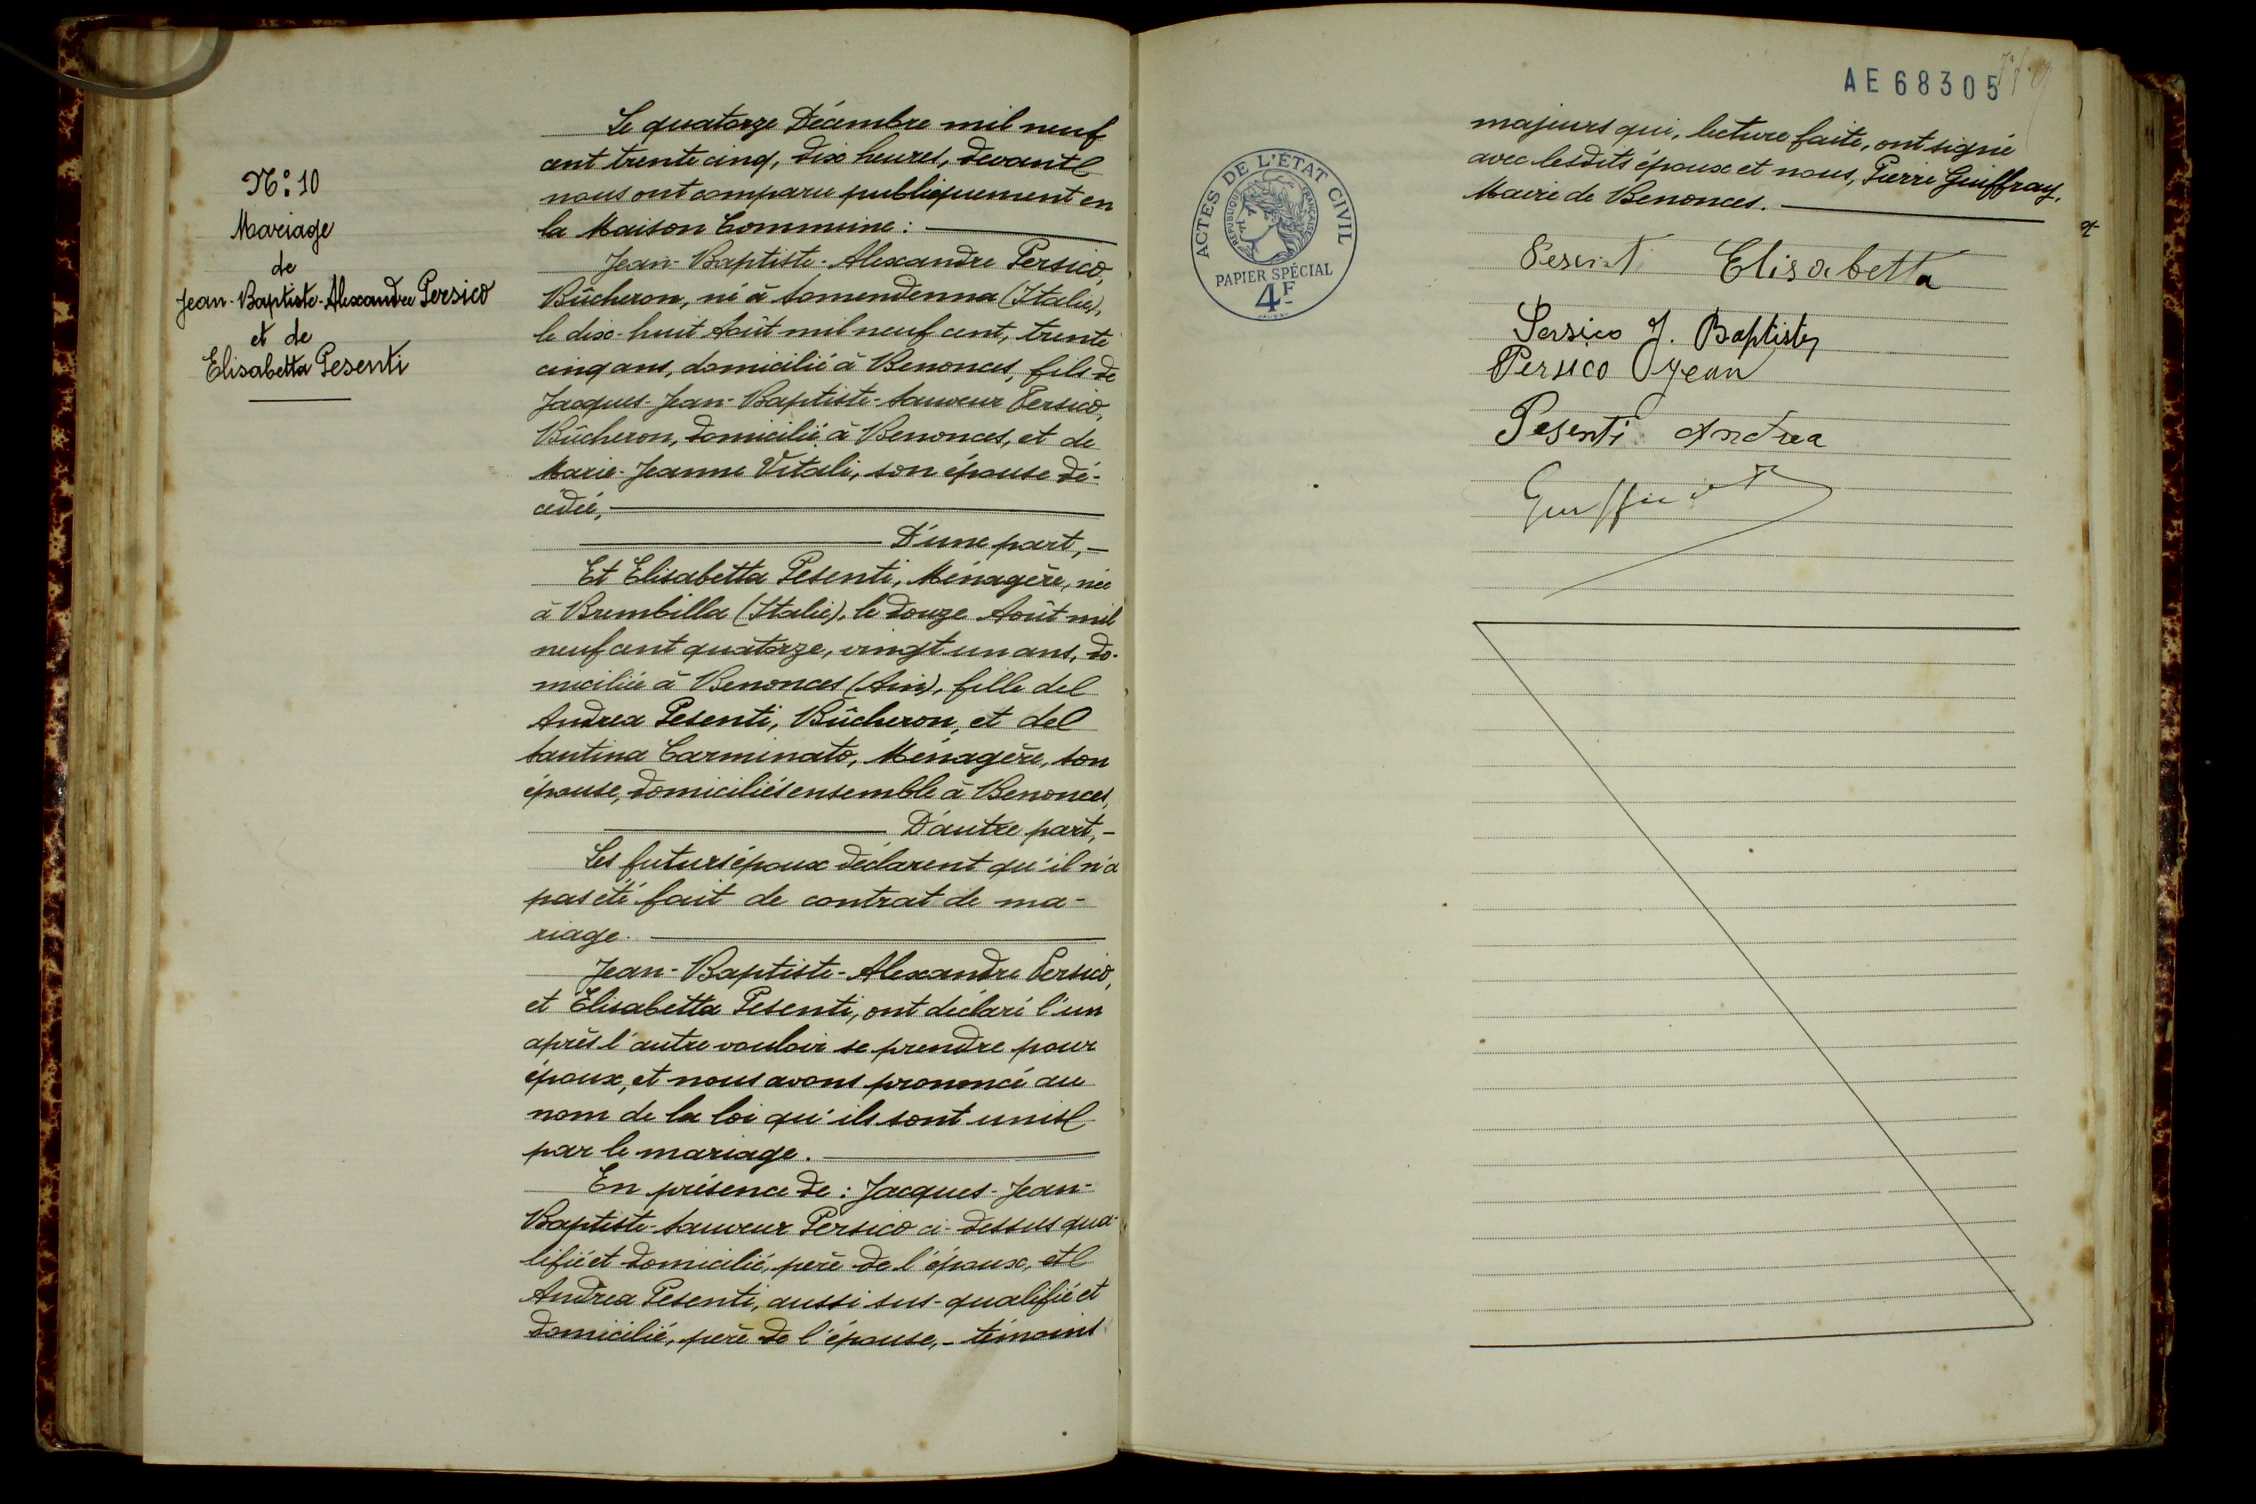 N.° 10
Mariage
de
Jean-Baptiste-Alexandre Persico
et de
Elisabetta Pesenti
Le quatorze Décembre mil neuf
cent trente cinq, dix heures, devant
nous ont comparu publiquement en
la Maison Commune :
Jean-Baptiste-Alexandre Persico,
Bûcheron, né à Somendenna (Italie),
le dix-huit Août mil neuf cent, trente
cinq ans, domicilié à Benonces, fils de
Jacques-Jean-Baptiste-Sauveur Persico,
Bûcheron, domicilié à Benonces, et de
Marie-Jeanne Vitali, son épouse dé-
cédée,
D'une part,
Et Elisabetta Pesenti, Ménagère, née
à Brembilla (Italie), le douze Août mil
neuf cent quatorze, vingt un ans, do-
miciliée à Benonces (Ain), fille de
Andrea Pesenti, Bûcheron, et de
Santina Carminato, Ménagère, son
épouse, domiciliés ensemble à Benonces,
D'autre part,
Les futurs époux déclarent qu'il n'a
pas été fait de contrat de ma-
riage.
Jean-Baptiste-Alexandre Persico,
et Elisabetta Pesenti, ont déclaré l'un
après l'autre vouloir se prendre pour
époux, et nous avons prononcé au
nom de la loi qu'ils sont unis
par le mariage.
En présence de : Jacques-Jean-
Baptiste-Sauveur Persico ci-dessus qua-
lifié et domicilié, père de l'époux, et
Andrea Pesenti, aussi sus-qualifié et
domicilié, père de l'épouse, - témoins
AE 68305
majeurs qui, lecture faite, ont signé
avec lesdits époux et nous, Pierre Guiffray,
Maire de Benonces.
ACTES DE L'ÉTAT CIVIL
RÉPUBLIQUE FRANÇAISE
PAPIER SPÉCIAL
4F
Pesenti Elisabetta
Persico J. Baptiste
Persico Jean
Pesenti Andrea